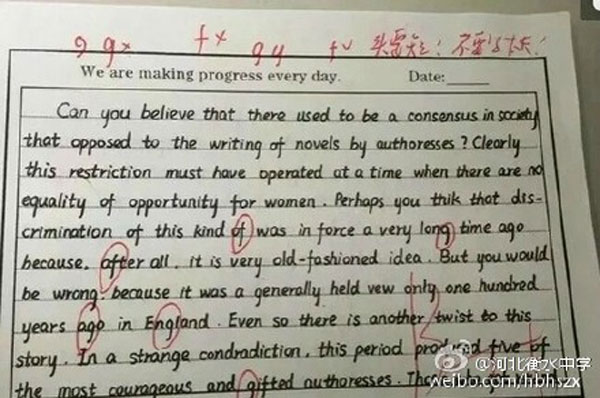 9 gx fx gy fv 头要短! 不要写太大!
We are making progress every day. Date:
Can you believe that there used to be a consensus in society
that opposed to the writing of novels by authoresses? Clearly
this restriction must have operated at a time when there are no
equality of opportunity for women. Perhaps you thik that dis-
crimination of this kind of was in force a very long time ago
because, after all, it is very old-fashioned idea. But you would
be wrong. because it was a generally held vew only one hundred
years ago in England. Even so there is another twist to this
story. In a strange condradiction, this period produced five of
the most courageous and gifted authoresses.
@河北衡水中学
weibo.com/hbhszx